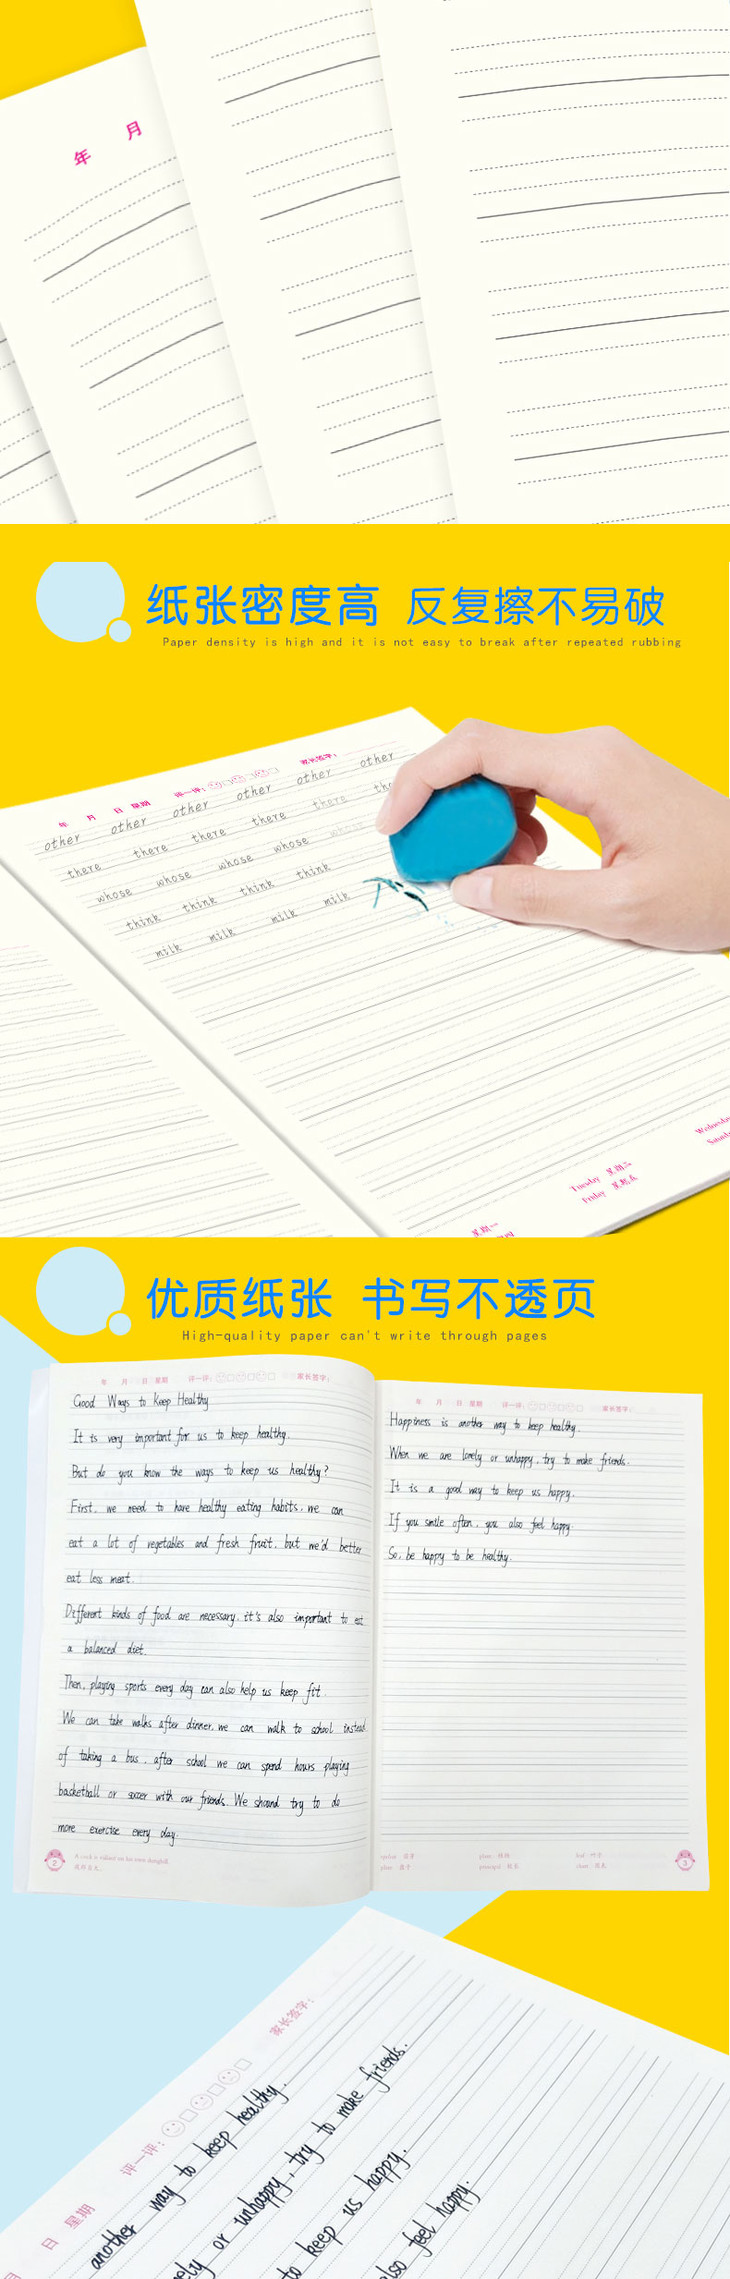 年 月
纸张密度高 反复擦不易破
Paper density is high and it is not easy to break after repeated rubbing
年 月 日 星期 评一评： 家长签字：
other other other other other other
there there there there there the
whose whose whose whose whose
think think think think
milk milk milk milk
星期一
Tuesday 星期二
Friday 星期五
Wednesday
Saturday
优质纸张 书写不透页
High-quality paper can't write through pages
年 月 日 星期 评一评： 家长签字：
Good Ways to Keep Healthy
It is very important for us to keep healthy.
But do you know the ways to keep us healthy?
First, we need to have healthy eating habits. we can
eat a lot of vegetables and fresh fruit, but we'd better
eat less meat.
Different kinds of food are necessary. it's also important to eat
a balanced diet.
Then, playing sports every day can also help us keep fit.
We can take walks after dinner. we can walk to school instead
of taking a bus. after school we can spend hours playing
basketball or soccer with our friends. We should try to do
more exercise every day.
2
年 月 日 星期 评一评： 家长签字：
Happiness is another way to keep healthy.
When we are lonely or unhappy, try to make friends.
It is a good way to keep us happy.
If you smile often, you also feel happy.
So, be happy to be healthy.
principal 校长
3
日 星期 评一评： 家长签字：
another way to keep healthy.
ely or unhappy, try to make friends.
to keep us happy.
also feel happy.